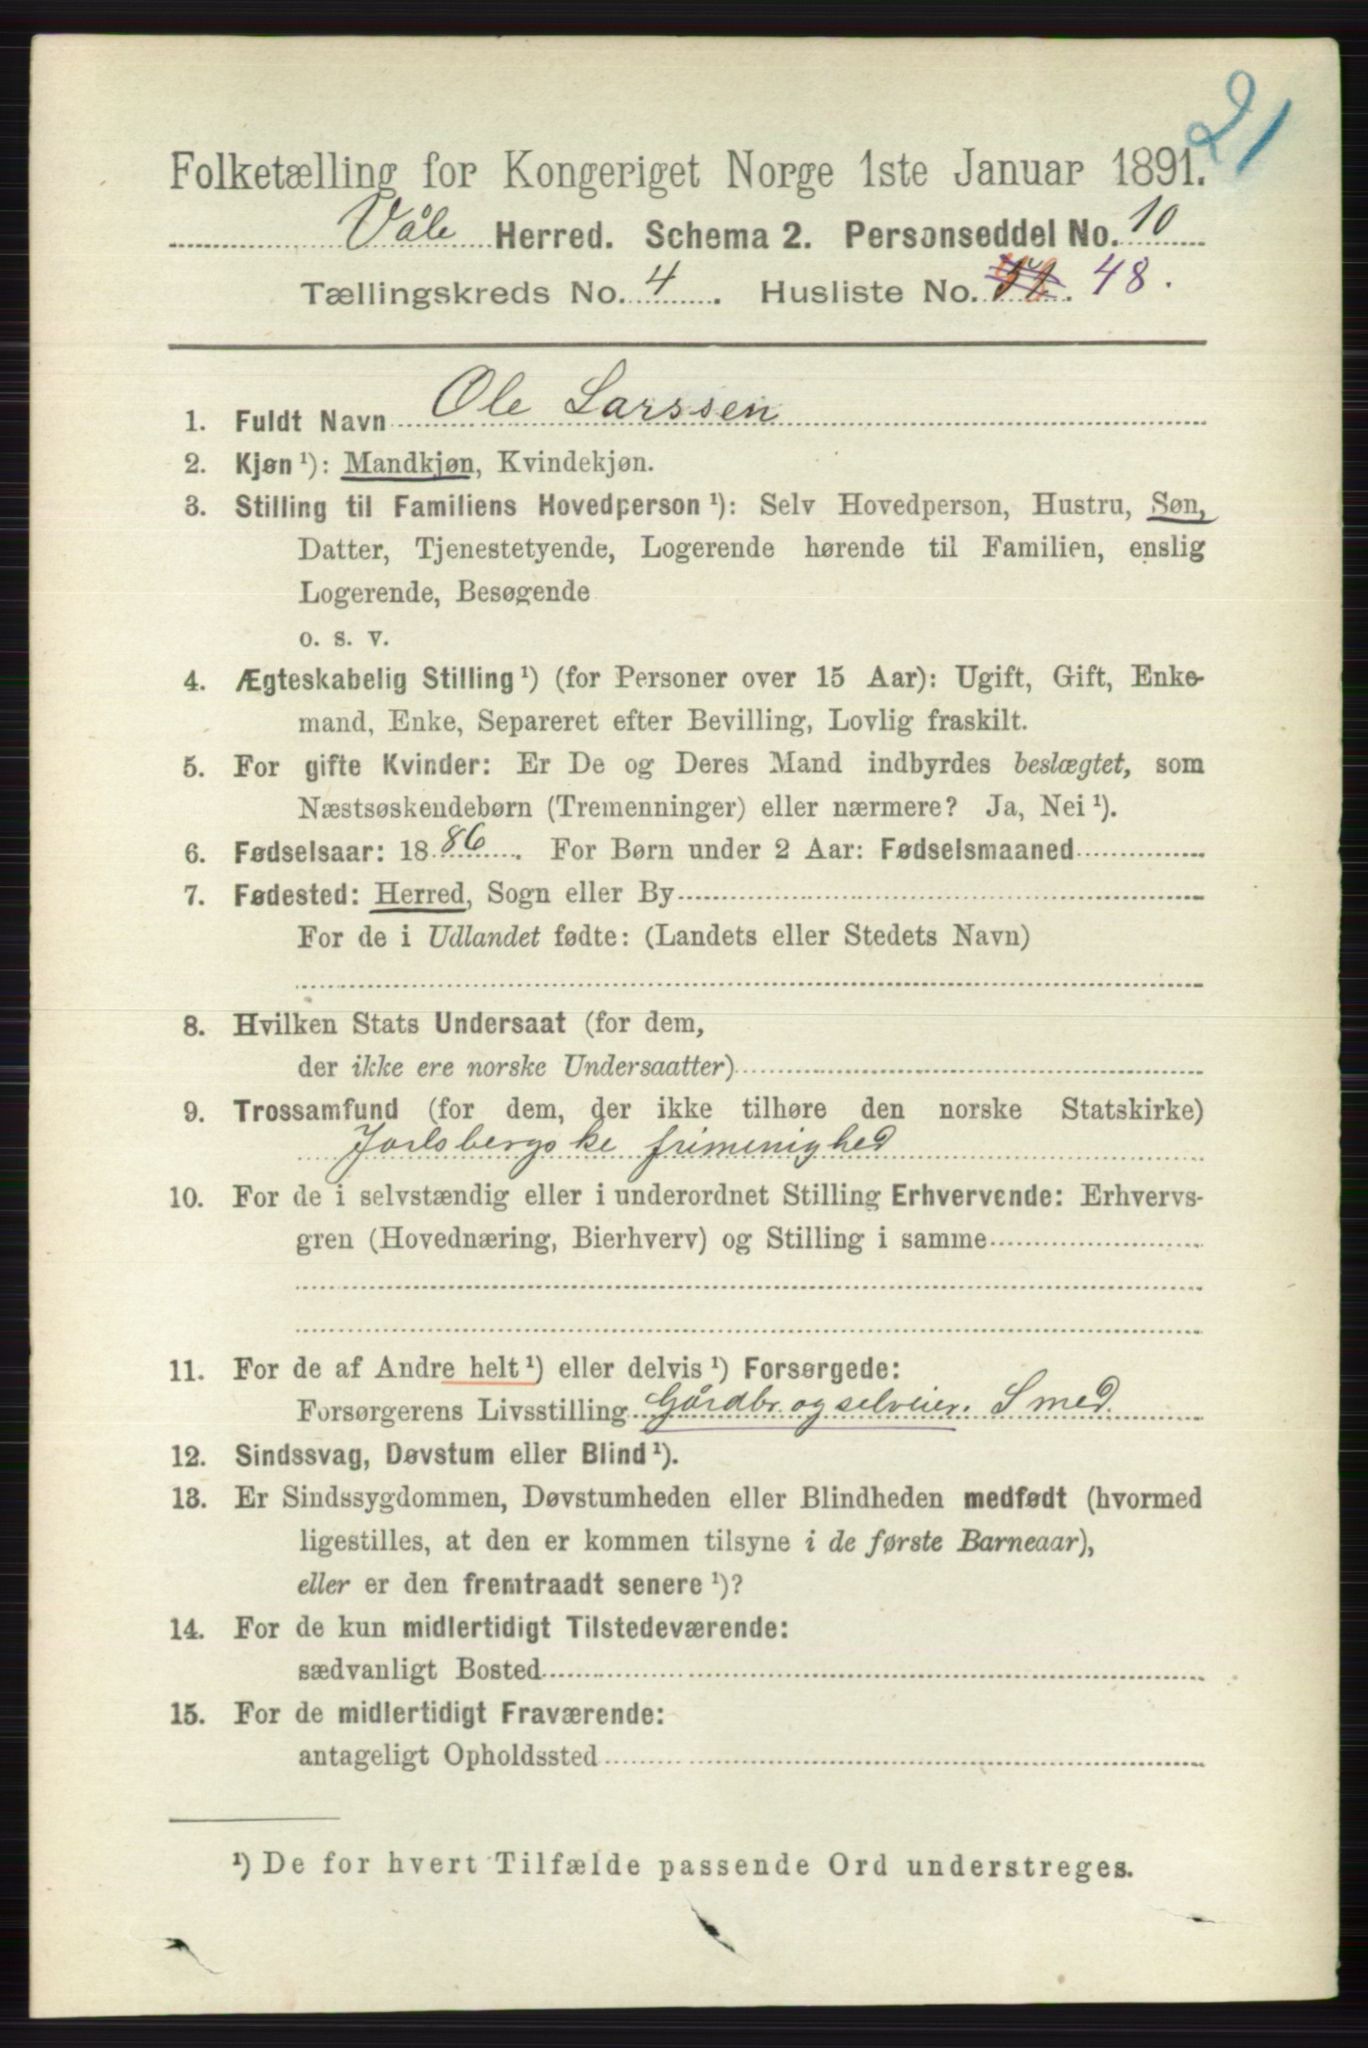 21
Folketælling for Kongeriget Norge 1ste Januar 1891.
Våle Herred. Schema 2. Personseddel No. 10
Tællingskreds No. 4. Husliste No. 48.
1. Fuldt Navn Ole Larssen
2. Kjøn ¹): Mandkjøn, Kvindekjøn.
3. Stilling til Familiens Hovedperson ¹): Selv Hovedperson, Hustru, Søn,
Datter, Tjenestetyende, Logerende hørende til Familien, enslig
Logerende, Besøgende
o. s. v.
4. Ægteskabelig Stilling ¹) (for Personer over 15 Aar): Ugift, Gift, Enke-
mand, Enke, Separeret efter Bevilling, Lovlig fraskilt.
5. For gifte Kvinder: Er De og Deres Mand indbyrdes beslægtet, som
Næstsøskendebørn (Tremenninger) eller nærmere? Ja, Nei ¹).
6. Fødselsaar: 1886. For Børn under 2 Aar: Fødselsmaaned
7. Fødested: Herred, Sogn eller By
For de i Udlandet fødte: (Landets eller Stedets Navn)
8. Hvilken Stats Undersaat (for dem,
der ikke ere norske Undersaatter)
9. Trossamfund (for dem, der ikke tilhøre den norske Statskirke)
Jarlsbergske frimenighed
10. For de i selvstændig eller i underordnet Stilling Erhvervende: Erhvervs-
gren (Hovednæring, Bierhverv) og Stilling i samme
11. For de af Andre helt ¹) eller delvis ¹) Forsørgede:
Forsørgerens Livsstilling Gårdbr. og selveier. Smed
12. Sindssvag, Døvstum eller Blind ¹).
13. Er Sindssygdommen, Døvstumheden eller Blindheden medfødt (hvormed
ligestilles, at den er kommen tilsyne i de første Barneaar),
eller er den fremtraadt senere ¹)?
14. For de kun midlertidigt Tilstedeværende:
sædvanligt Bosted
15. For de midlertidigt Fraværende:
antageligt Opholdssted
¹) De for hvert Tilfælde passende Ord understreges.